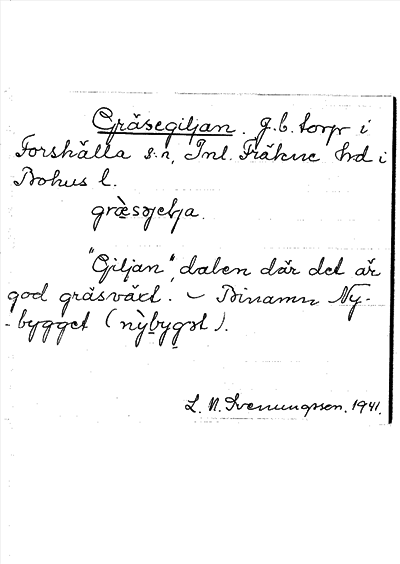 Gräsegiljan. g.b. torp i
Forshälla s:n, Inl. Fräkne hd i
Bohus l.
græ̀sə jelja.
"Giljan", dalen där det är
god gräsväxt. – Binamn Ny-
-bygget (nỳbygət).
L. N. Svenungsson. 1941.